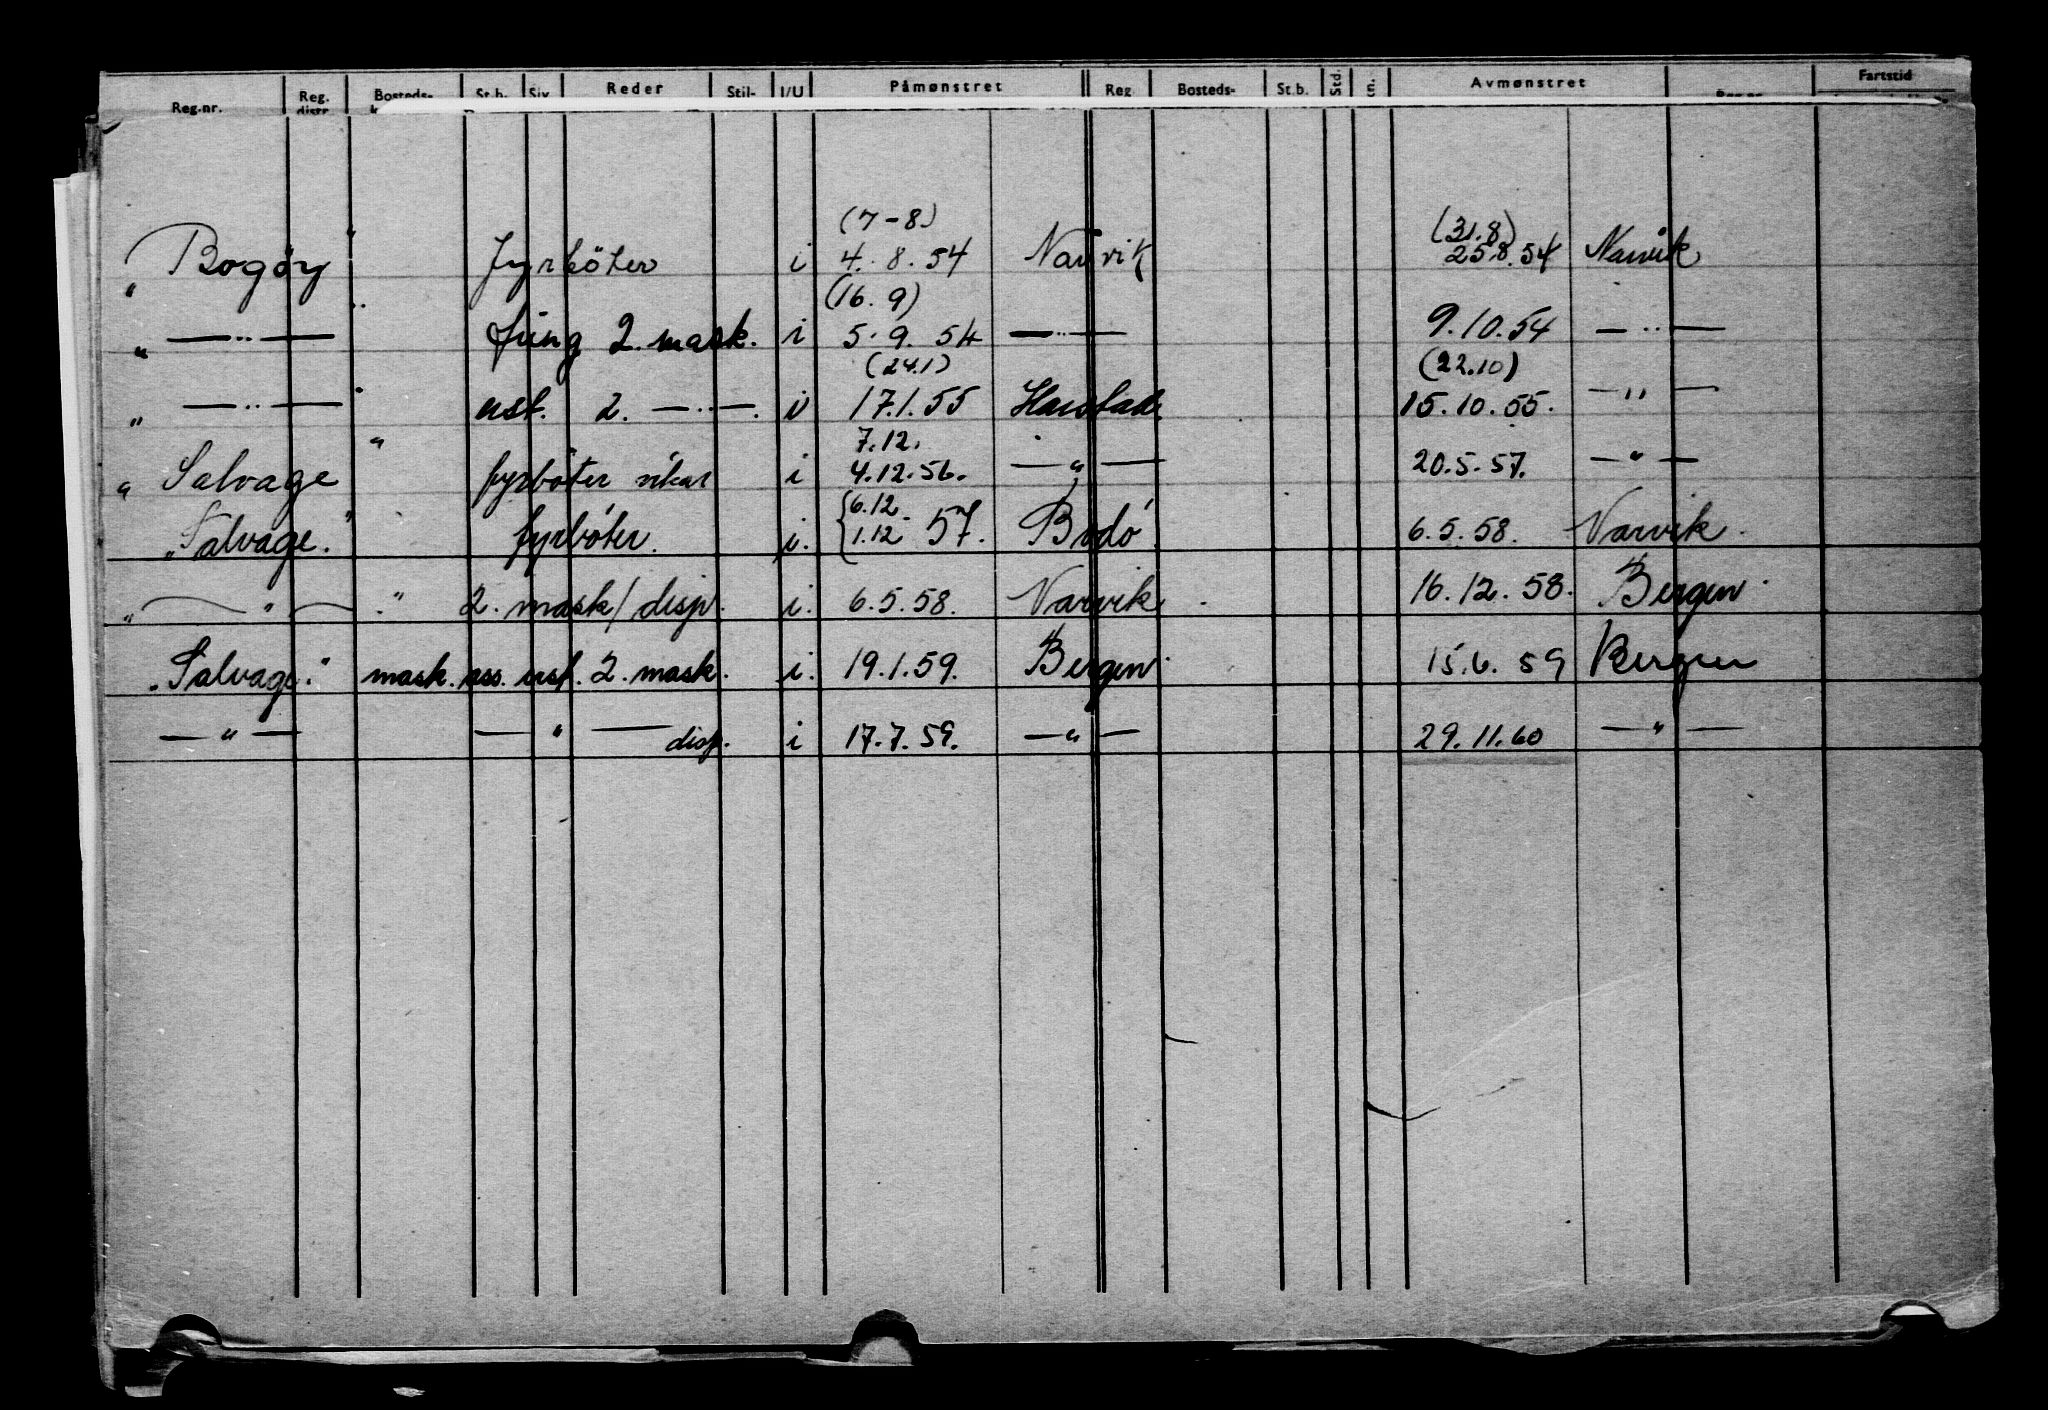 Reg.nr. Reg. distr Bosteds- St.b. Siv Reder Stil- I/U Påmønstret Reg Bosteds- St.b. Std. Avmønstret Fartstid
(7-8) (31.8)
"Bogøy" Fyrböter i 4.8.54 Narvik 25.8.54 Narvik
(16.9)
" — .. — " fung 2. mask. i 5.9.54 — .. — 9.10.54 — .. —
(24.1) (22.10)
" — .. — " ust. 2. — .. — . i 17.1.55 Harstad. 15.10.55. — " —
7.12.
"Salvage" fyrböter vikar i 4.12.56. — " — 20.5.57. — " —
6.12
"Salvage." fyrböter. i. 1.12 - 57. Bodó. 6.5.58. Narvik.
" — " — ." 2. mask/disp. i. 6.5.58. Narvik. 16.12.58. Bergen.
"Salvage." mask. ass. ust. 2. mask. i. 19.1.59. Bergen. 15.6.59 Bergen
— " — — " — disp. i 17.7.59. — " — 29.11.60 — " —